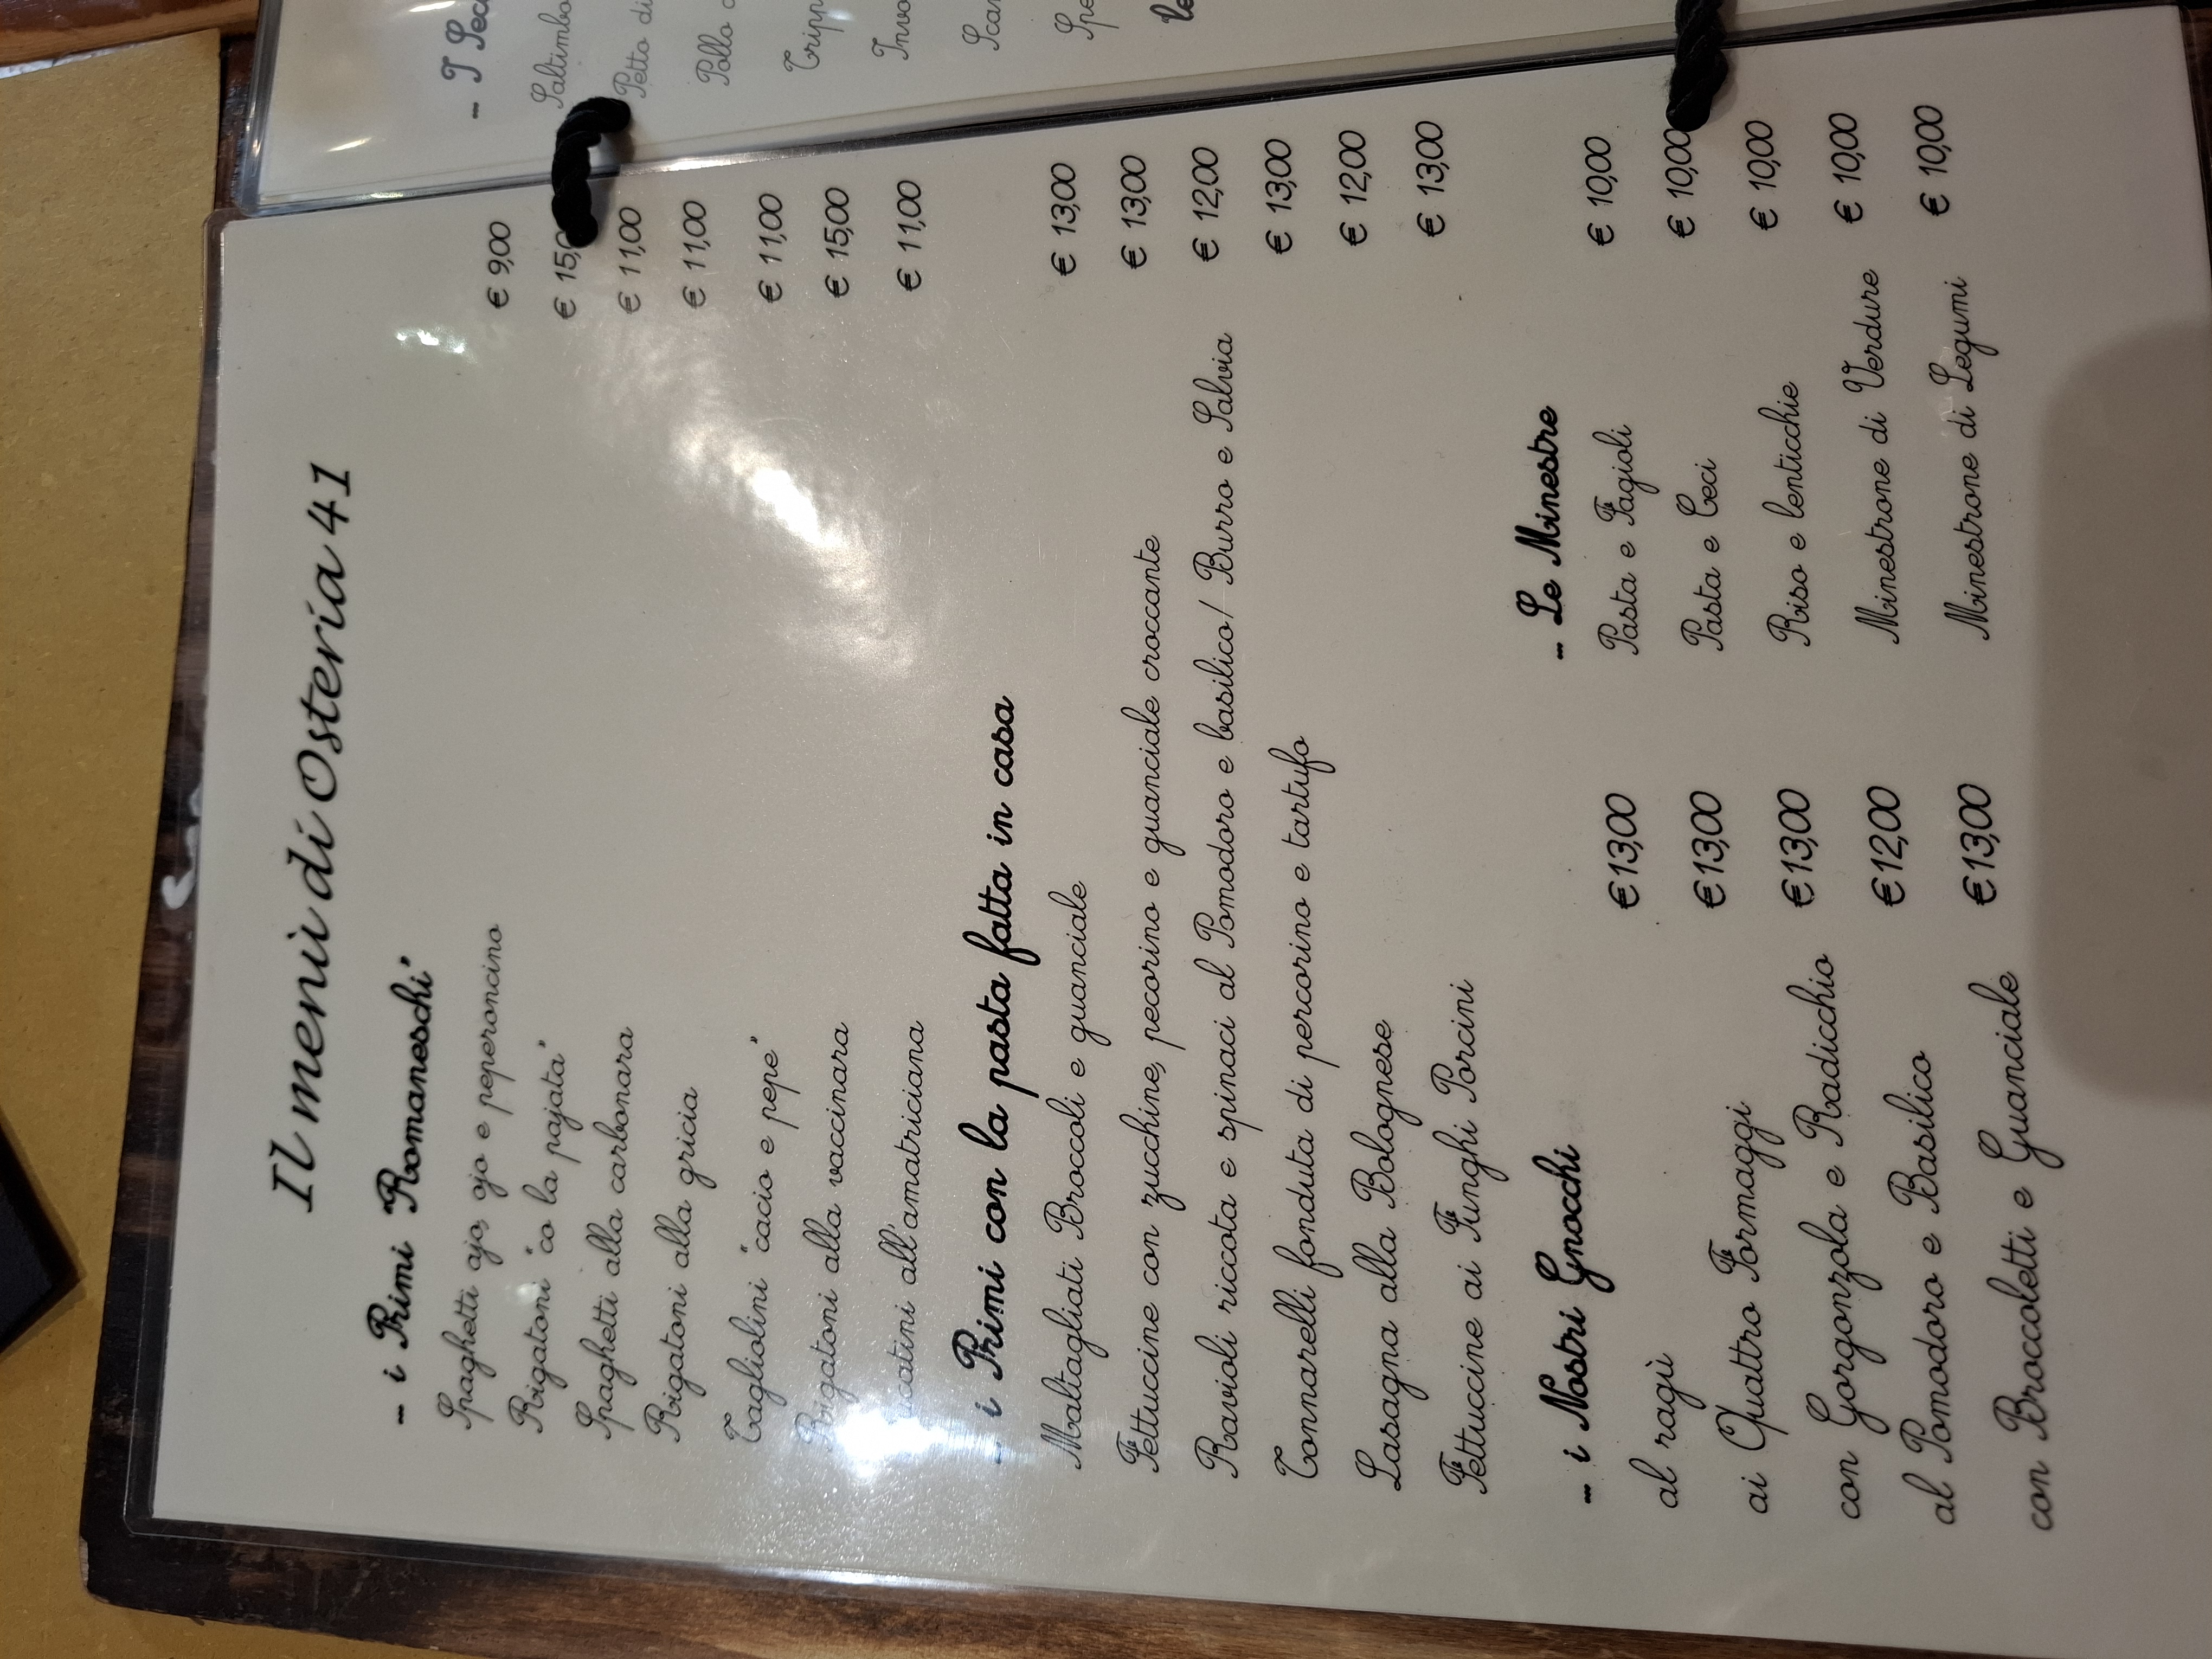 Il menù di Osteria 41
- i Primi Romaneschi"
Spaghetti ajo, ojo e peperoncino € 9,00
Rigatoni "co la pajata" € 15,0
Spaghetti alla carbonara € 11,00
Rigatoni alla gricia € 11,00
Tagliolini "cacio e pepe" € 11,00
Rigatoni alla vaccinara € 15,00
all'amatriciana € 11,00
- i Primi con la pasta fatta in casa
Maltagliati Broccoli e guanciale € 13,00
Fettuccine con zucchine, pecorino e guanciale croccante € 13,00
Ravioli riccota e spinaci al Pomodoro e basilico/ Burro e Salvia € 12,00
Tonnarelli fonduta di percorino e tartufo € 13,00
Lasagna alla Bolognese € 12,00
Fettuccine ai Funghi Porcini € 13,00
- i Nostri Gnocchi
al ragù €13,00
ai Quattro Formaggi €13,00
con Gorgonzola e Radicchio €13,00
al Pomodoro e Basilico €12,00
con Broccoletti e Guanciale €13,00
- Le Minestre
Pasta e Fagioli € 10,00
Pasta e Ceci € 10,00
Riso e lenticchie € 10,00
Minestrone di Verdure € 10,00
Minestrone di Legumi € 10,00
- I
Petto di
Pollo